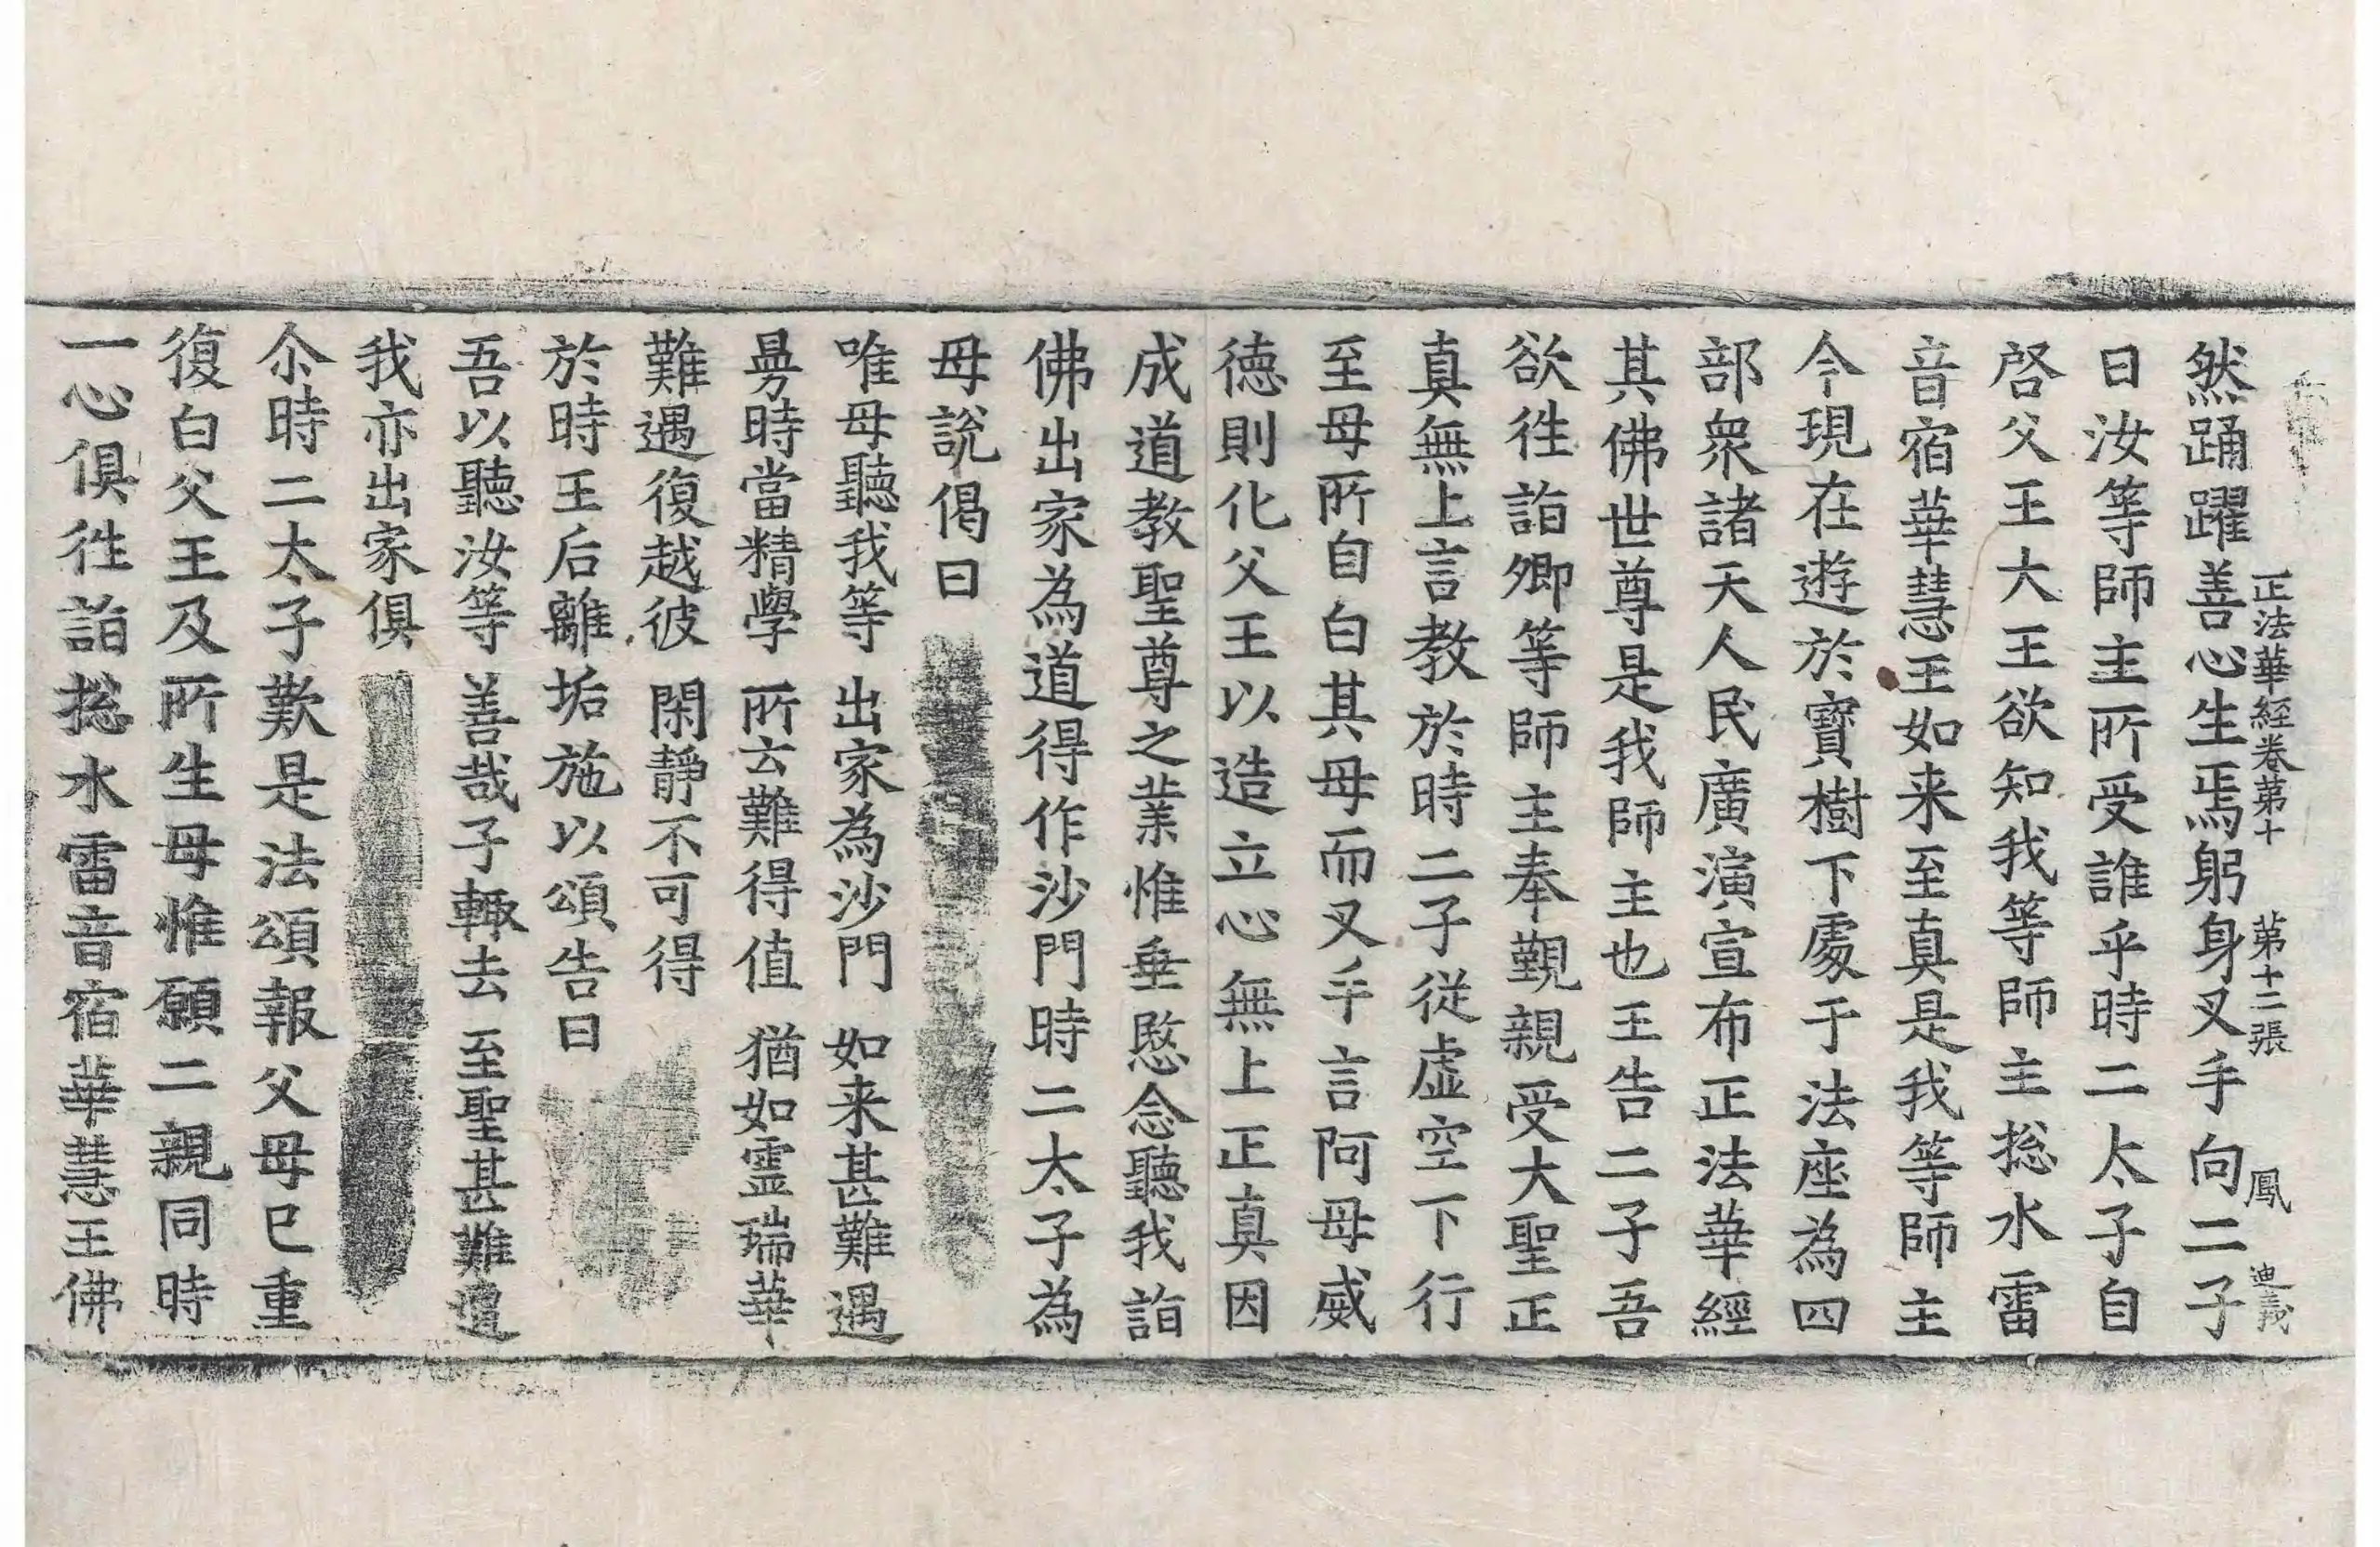 正法華經卷第十 第十二張 鳳 迪義
然踊躍善心生焉躬身叉手向二子
曰汝等師主所受誰乎時二太子自
啓父王大王欲知我等師主揔水雷
音宿華慧王如来至真是我等師主
今現在遊於寶樹下處于法座為四
部衆諸天人民廣演宣布正法華經
其佛世尊是我師主也王告二子吾
欲往詣卿等師主奉覲親受大聖正
真無上言教於時二子從虛空下行
至母所自白其母而叉手言阿母威
德則化父王以造立心無上正真因
成道教聖尊之業惟垂愍念聽我詣
佛出家為道得作沙門時二太子為
母說偈曰
唯母聽我等 出家為沙門 如来甚難遇
曼時當精學 所云難得值 猶如靈瑞華
難遇復越彼 閑靜不可得
於時王后離垢施以頌告曰
吾以聽汝等 善哉子輙去 至聖甚難遭
我亦出家俱
尒時二太子歎是法頌報父母已重
復白父王及所生母惟願二親同時
一心俱往詣揔水雷音宿華慧王佛